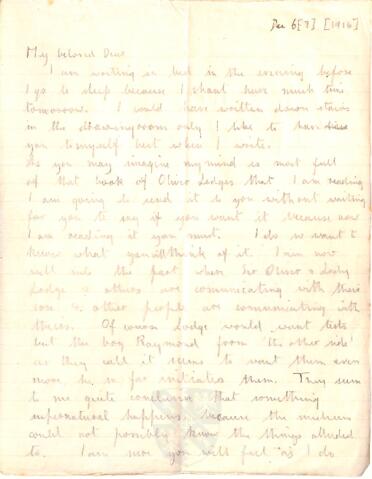 Dec 6[?] [1916]
My beloved Dear
I am writing in bed in the evening before
I go to sleep because I shant have much time
tomorrow. I could have written down stairs
in the drawingroom only I like to have
you to myself best when I write.
As you may imagine my mind is most full
of that book of Oliver Lodges that I am reading
I am going to send it to you without waiting
for you to say if you want it because now
I am reading it you must. I do so want to
know what you will think of it. I am now
well into the part where Sir Oliver & Lady
Lodge & others are comunicating with their
son & other people are comunicating with
theirs. Of course Lodge would want tests
but the boy Raymond from 'the other side'
as they call it seems to want them even
more, he so far initiates them. They seem
to me quite conclusive that something
supernatural happens, because the mediums
could not possibly know the things alluded
to. I am sure you will feel as I do